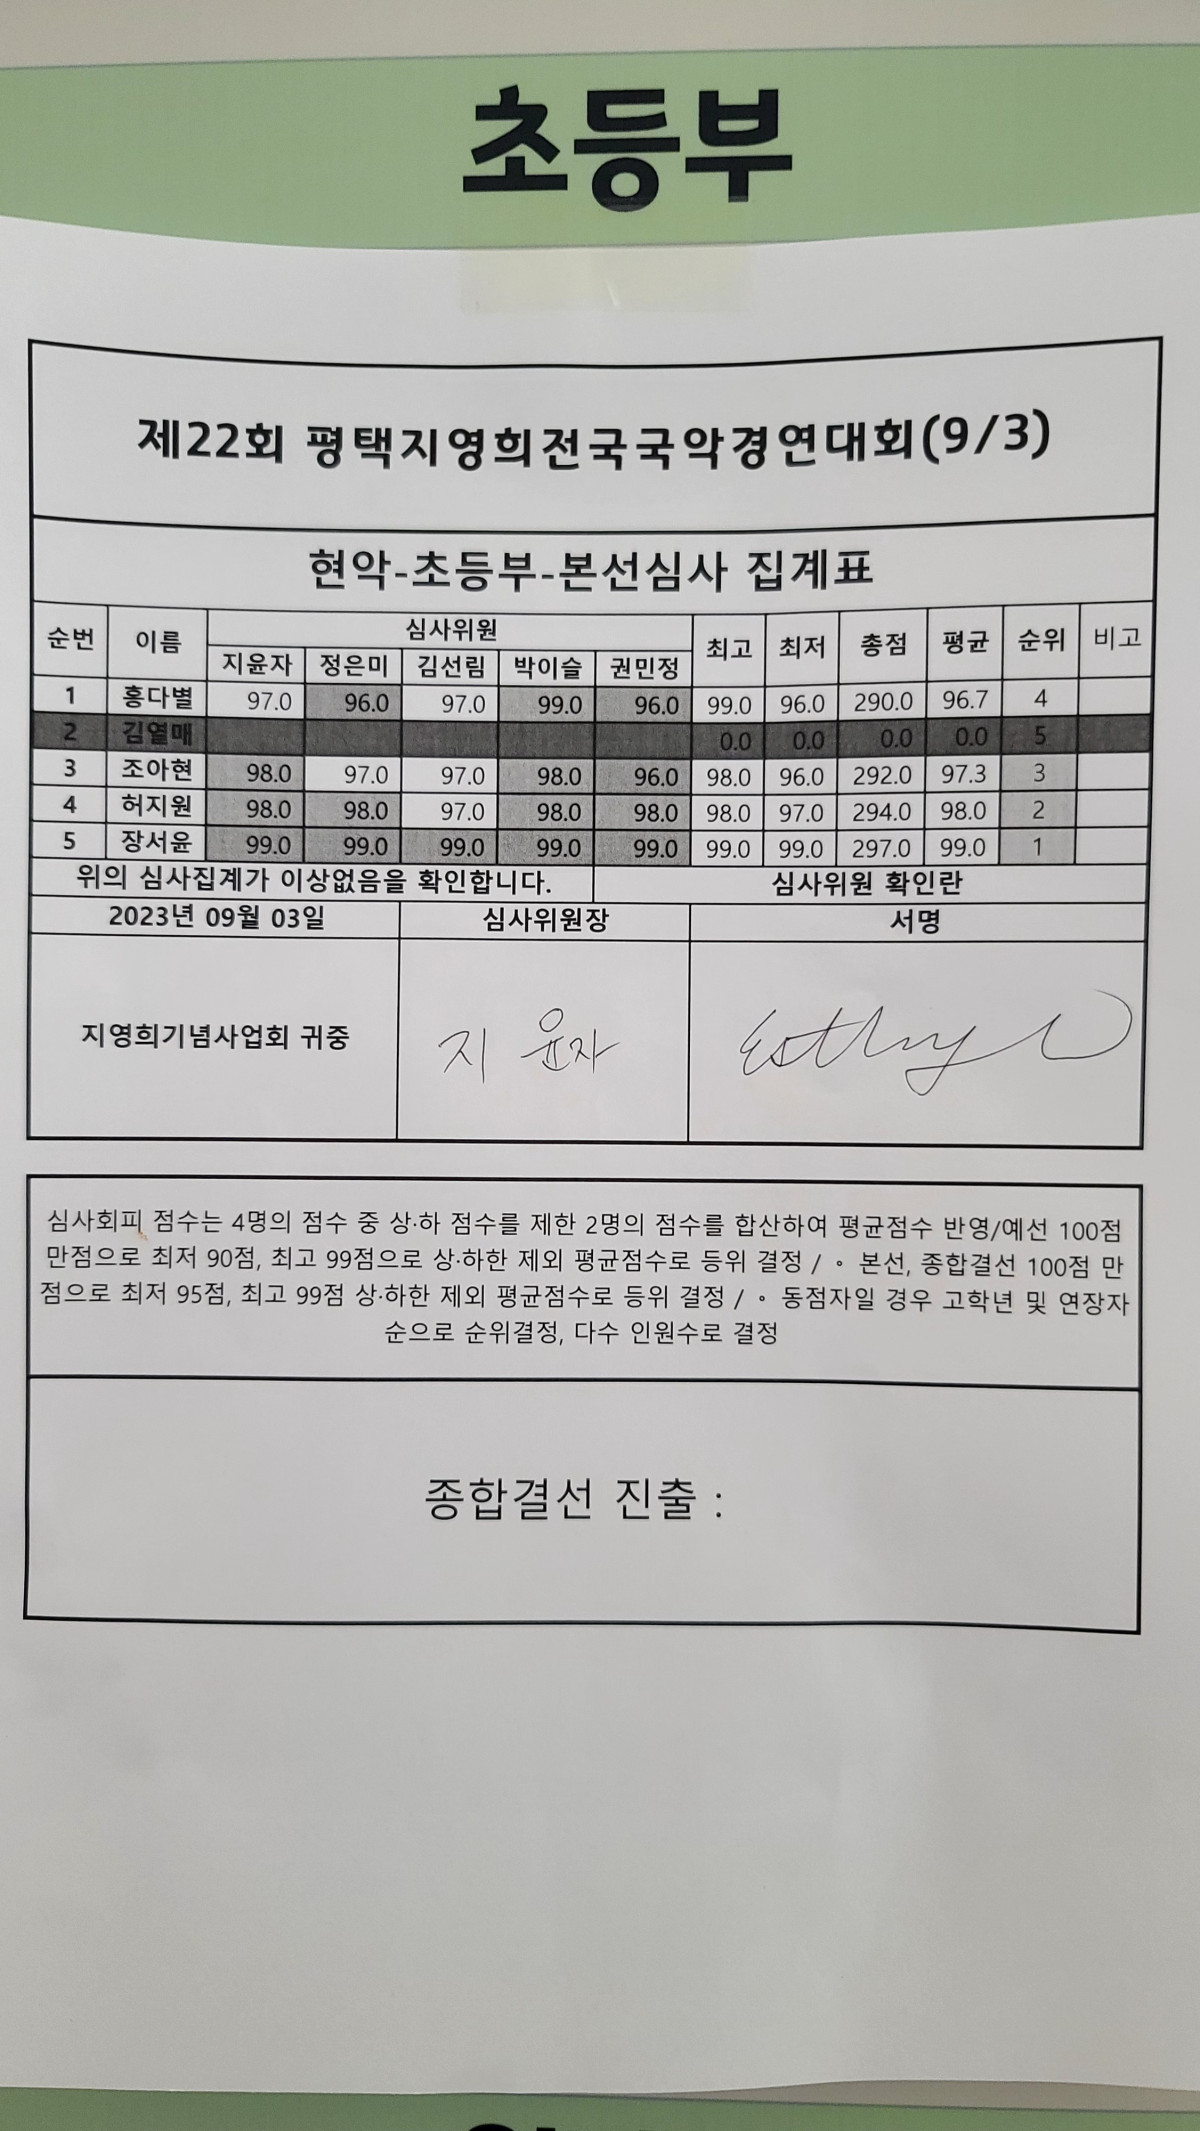 초등부
제22회 평택지영희전국국악경연대회(9/3)
현악-초등부-본선심사 집계표
순번 이름 심사위원 최고 최저 총점 평균 순위 비고
지윤자 정은미 김선림 박이슬 권민정
1 홍다별 97.0 96.0 97.0 99.0 96.0 99.0 96.0 290.0 96.7 4
2 김열매 0.0 0.0 0.0 0.0 5
3 조아현 98.0 97.0 97.0 98.0 96.0 98.0 96.0 292.0 97.3 3
4 허지원 98.0 98.0 97.0 98.0 98.0 98.0 97.0 294.0 98.0 2
5 장서윤 99.0 99.0 99.0 99.0 99.0 99.0 99.0 297.0 99.0 1
위의 심사집계가 이상없음을 확인합니다. 심사위원 확인란
2023년 09월 03일 심사위원장 서명
지영희기념사업회 귀중 지 윤자
심사회피 점수는 4명의 점수 중 상·하 점수를 제한 2명의 점수를 합산하여 평균점수 반영/예선 100점
만점으로 최저 90점, 최고 99점으로 상·하한 제외 평균점수로 등위 결정 / ∘ 본선, 종합결선 100점 만
점으로 최저 95점, 최고 99점 상·하한 제외 평균점수로 등위 결정 / ∘ 동점자일 경우 고학년 및 연장자
순으로 순위결정, 다수 인원수로 결정
종합결선 진출 :